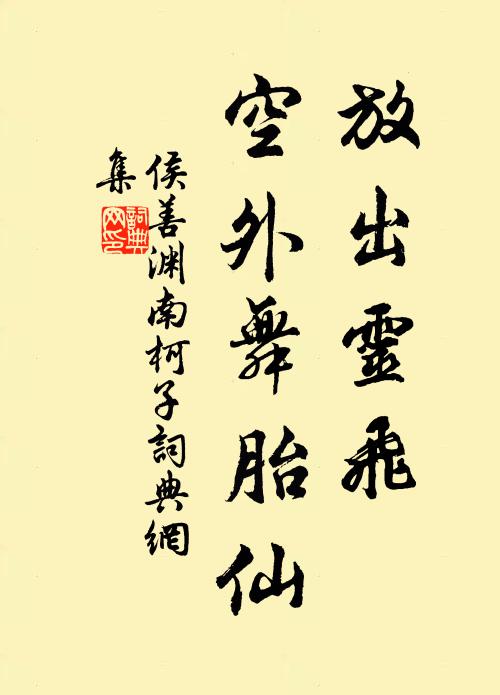 放出靈飛
空外舞胎仙
侯善渊南柯子詞典網
集
詞典
网印